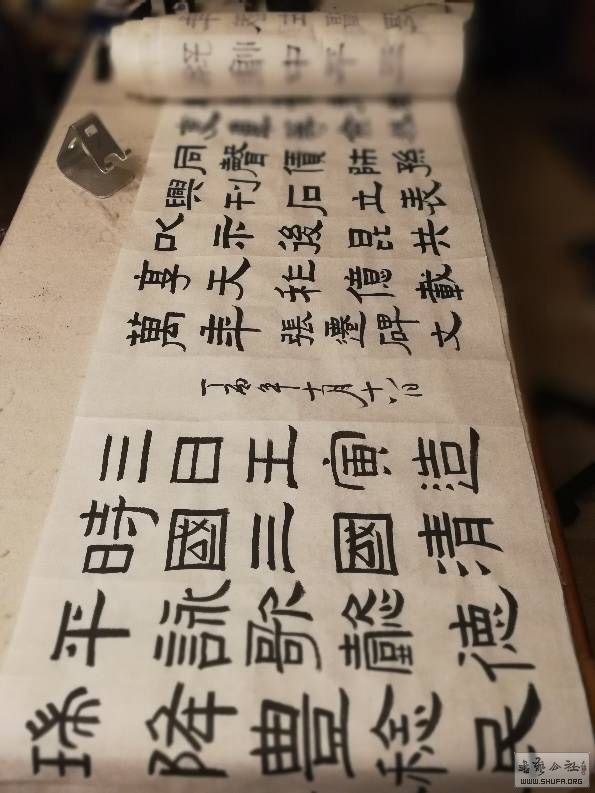 中平三
同聲賃師孫
興刊石立表
以示後昆共
享天祚億載
萬年張遷碑文
丁酉年十月十八日
三日王寅造
時國三國清
平詠歌懿德
降豊稔民
WWW.SHUFA.ORG